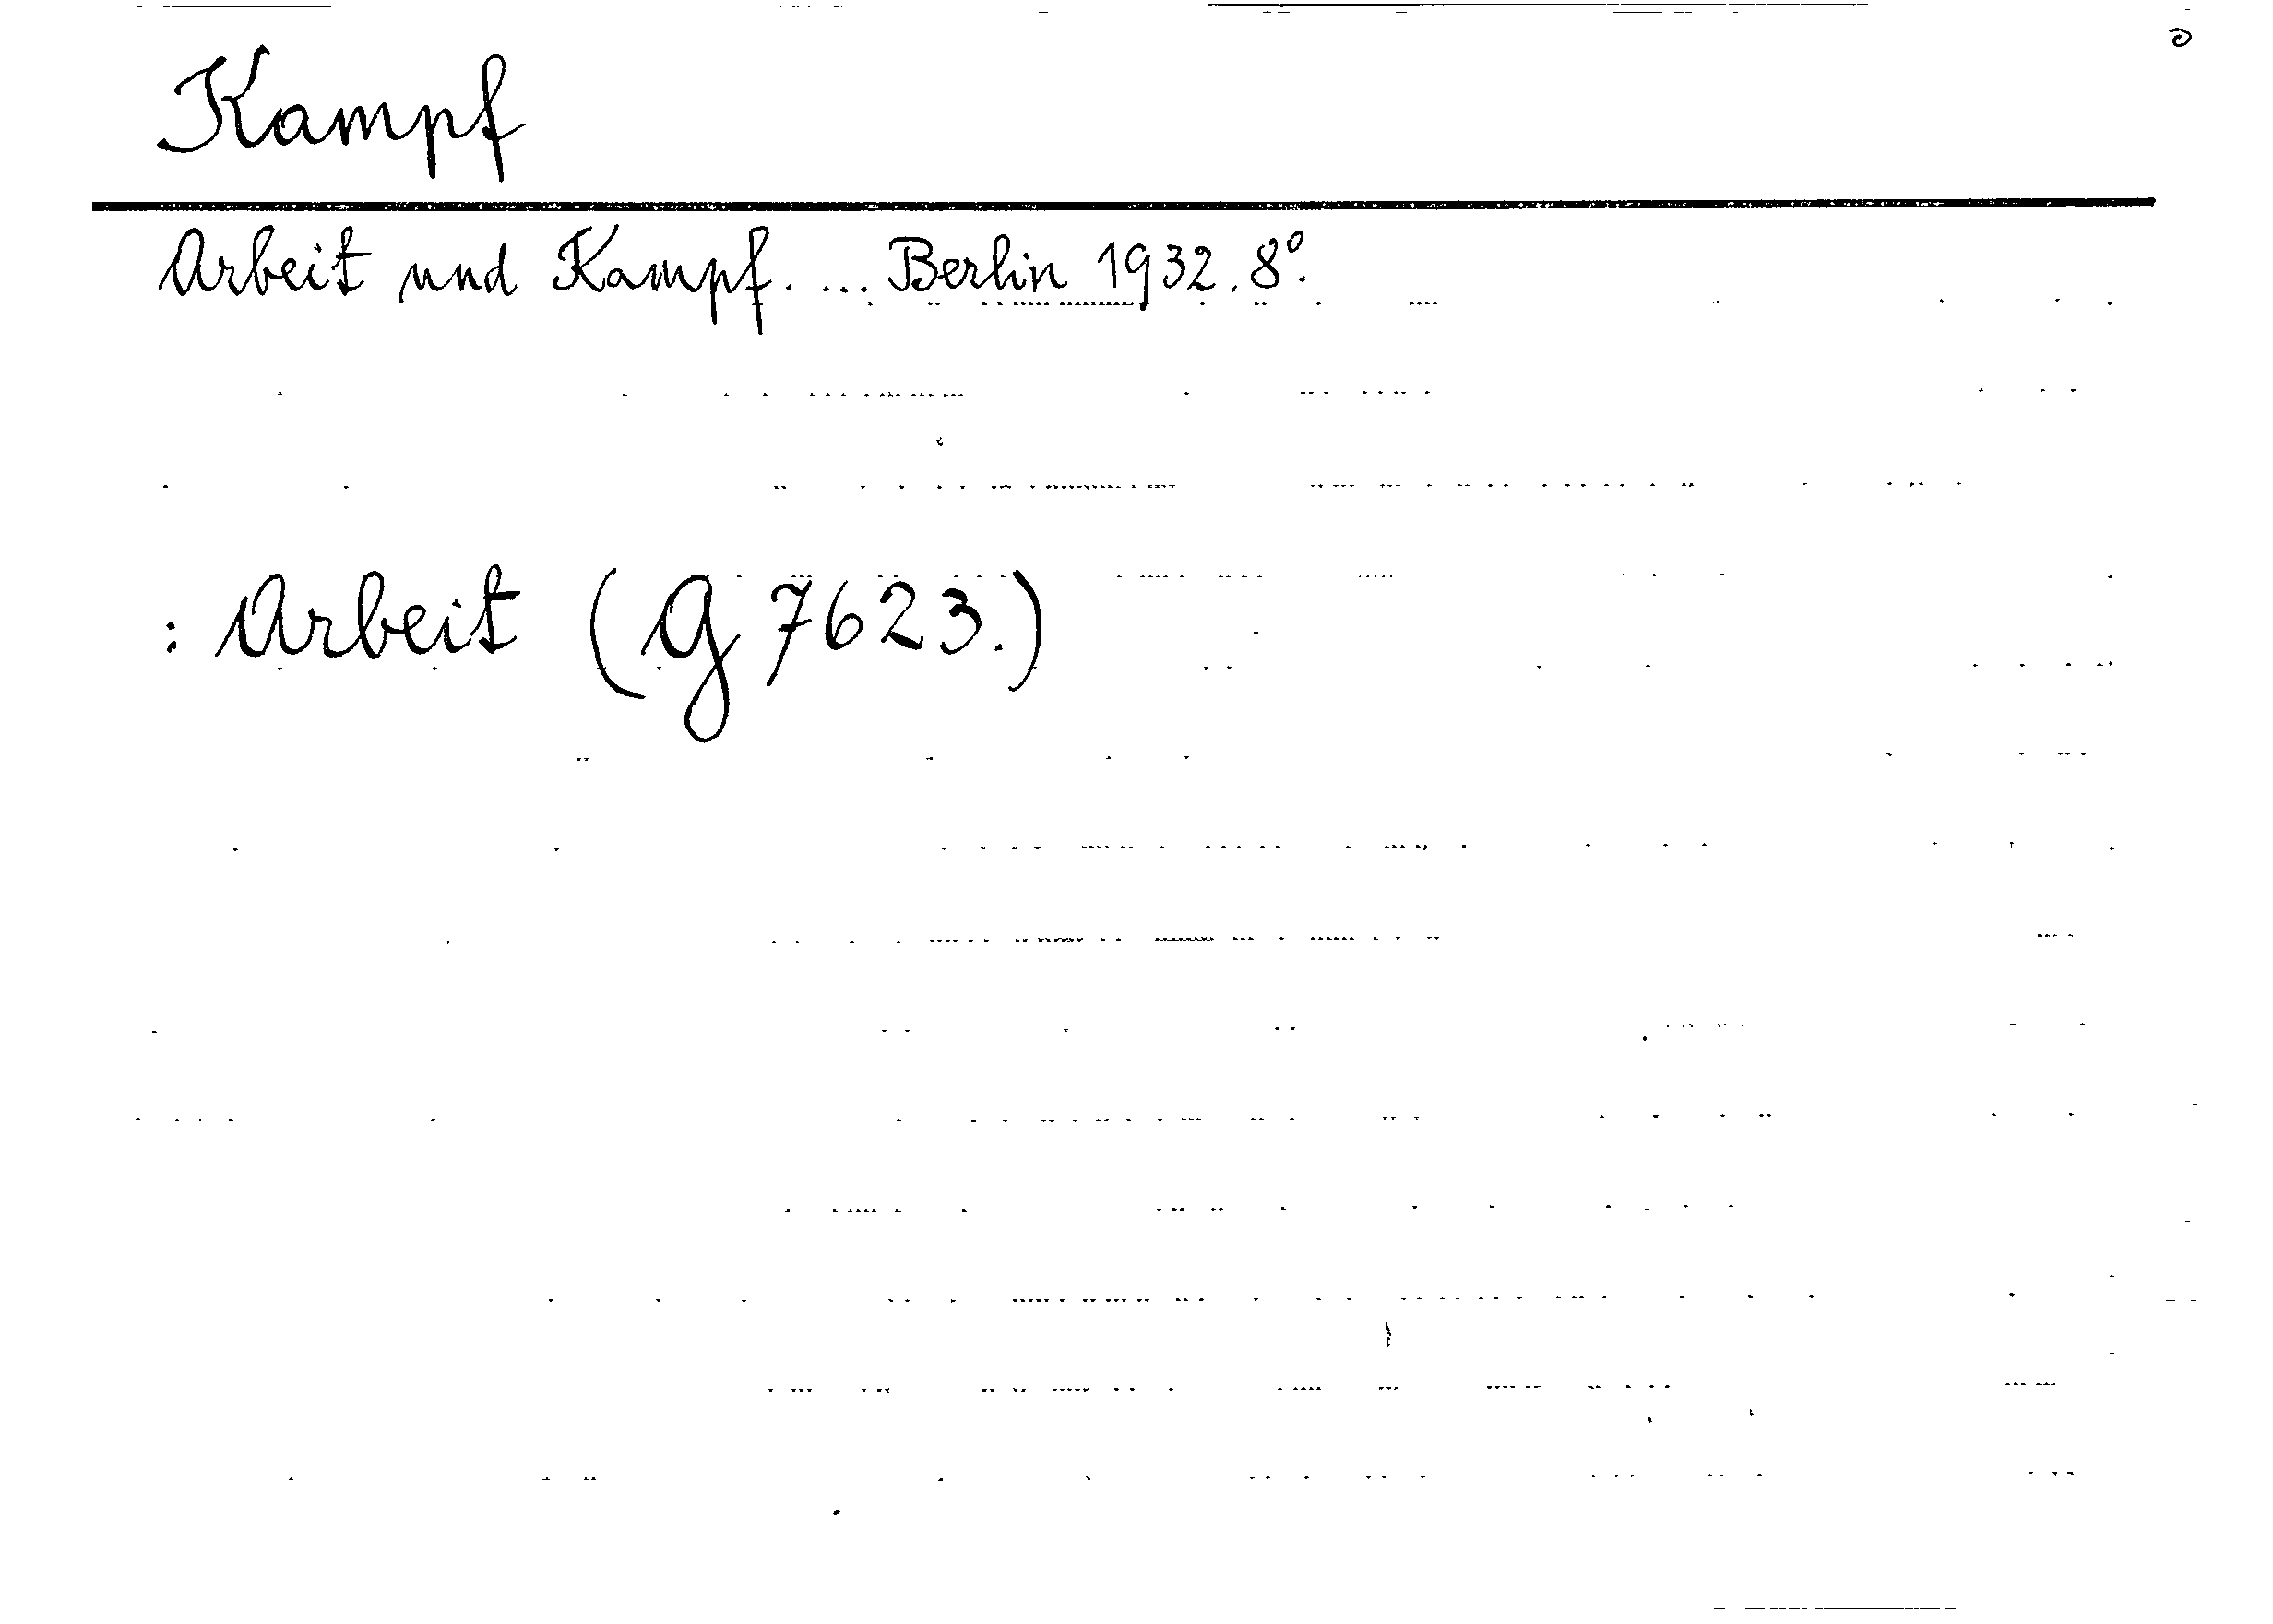 Kampf
Arbeit und Kampf. ... Berlin 1932. 8°.
: Arbeit (G 7623.)